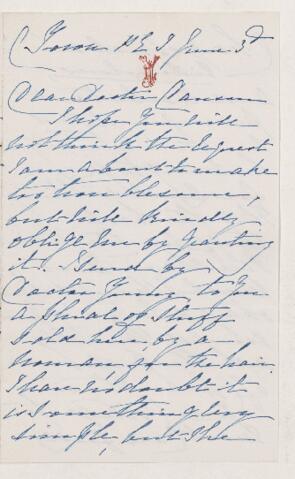 Dear Doctor Dawson
I hope You will
not think the request
I am about to make
too troublesome,
but will kindly
oblige me by granting
it. I send by
Doctor Young to You
a phial of Stuff
sold here, by a
woman, for the hair.
I have no doubt it
is something very
simple, but She